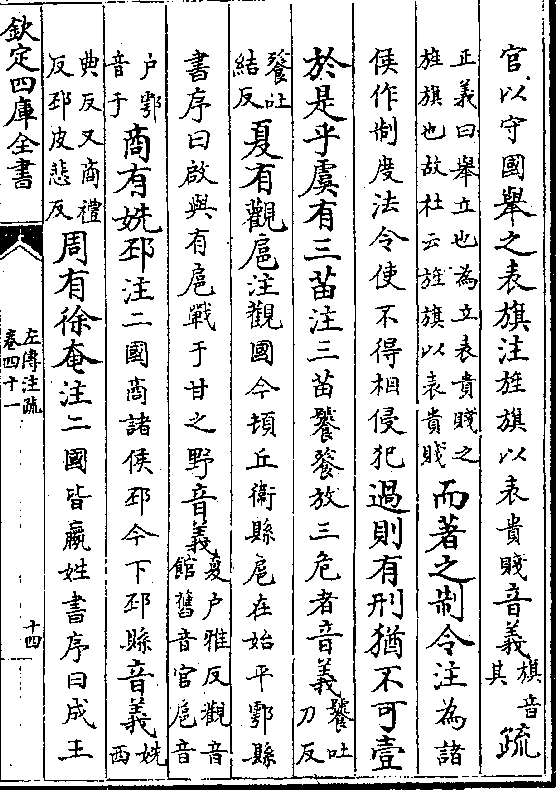 官以守國舉之表旗注旌旗以表貴賤音義旗音其疏
正義曰舉立也為立表貴賤之
旌旗也故杜云旌旗以表貴賤
而著之制令注為諸
侯作制度法令使不得相侵犯過則有刑猶不可壹
於是乎虞有三苗注三苗饕餮放三危者音義饕吐刀反
餮吐結反夏有觀扈注觀國今頓丘衛縣扈在始平鄠縣
書序曰啟與有扈戰于甘之野音義夏戶雅反觀音館舊音官扈音
戶鄠音于商有姺邳注二國商諸侯邳今下邳縣音義姺西
典反又商禮反邳皮悲反周有徐奄注二國皆嬴姓書序曰成王
欽定四庫全書
左傳注疏
卷四十一
十四